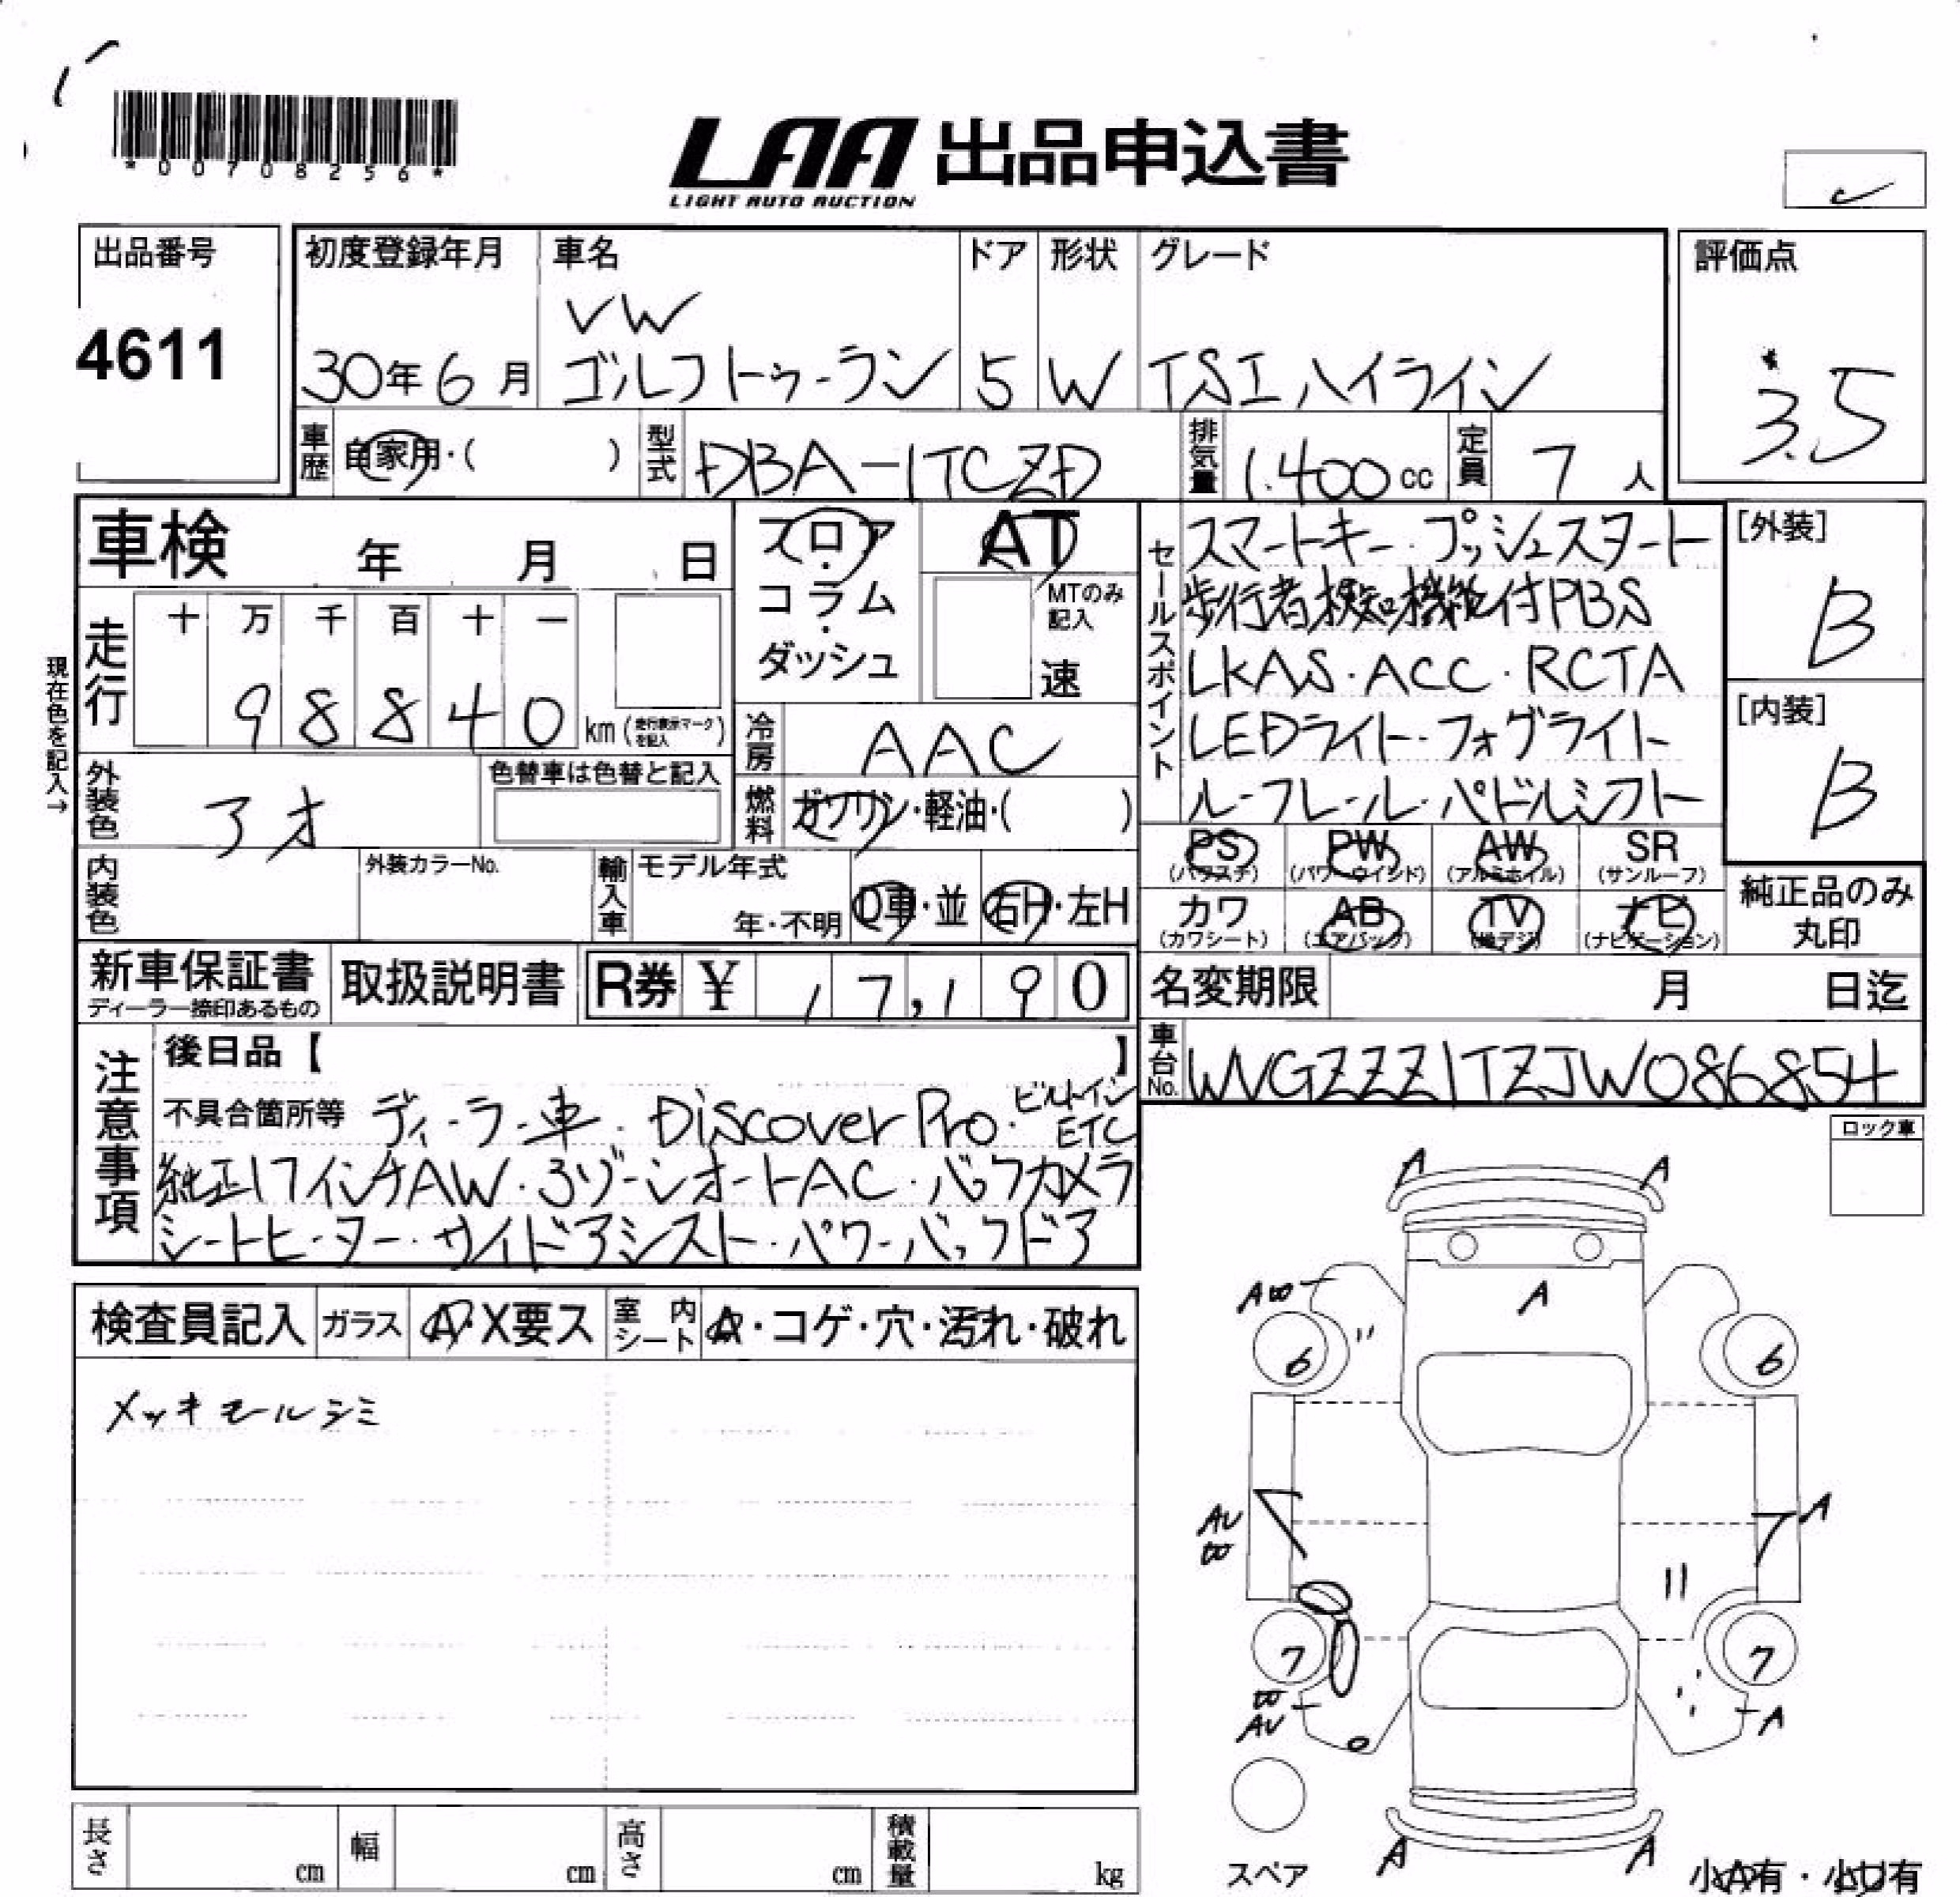 *00708256*
LAA 出品申込書
LIGHT AUTO AUCTION
出品番号
4611
初度登録年月
30年6月
車名
VW
ゴルフトゥーラン
ドア
5
形状
W
グレード
TSIハイライン
評価点
3.5
車歴 自家用・( )
型式 DBA-1TCZD
排気量 1.400cc
定員 7人
車検 年 月 日
フロア・コラム・ダッシュ
AT
MTのみ記入
速
現在色を記入→
走行
十 万 千 百 十 一
9 8 8 4 0 km (走行表示マークを記入)
冷房 AAC
燃料 ガソリン・軽油・( )
外装色 アオ
色替車は色替と記入
内装色
外装カラーNo.
輸入車 モデル年式
年・不明
D車・並
右H・左H
セールスポイント
スマートキー・プッシュスタート
歩行者検知機能付PBS
LKAS・ACC・RCTA
LEDライト・フォグライト
ルーフレール・パドルシフト
[外装]
B
[内装]
B
PS (パワステ) PW (パワーウインド) AW (アルミホイル) SR (サンルーフ)
カワ (カワシート) AB (エアバッグ) TV (地デジ) ナビ (ナビゲーション)
純正品のみ丸印
新車保証書
ディーラー捺印あるもの
取扱説明書
R券 ¥ 17,190
名変期限 月 日迄
車台No. WVGZZZ1TZJW086854
注意事項
後日品【 】
不具合箇所等 ディーラー車・Discover Pro・ビルトインETC
純正17インチAW・3ゾーンオートAC・バックカメラ
シートヒーター・サイドアシスト・パワーバックドア
ロック車
検査員記入 ガラス A・X要ス 室内シート A・コゲ・穴・汚れ・破れ
メッキモールシミ
A A
A
6 6
A
7 7
A
A A
スペア
小A有・小U有
長さ cm 幅 cm 高さ cm 積載量 kg